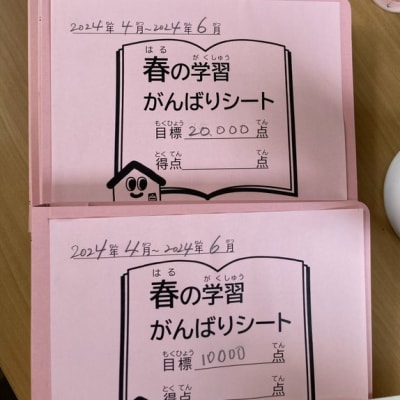 2024年4月~2024年6月
はる がくしゅう
春の学習
がんばりシート
もくひょう てん
目標 20.000 点
とくてん てん
得点 点
2024年4月~2024年6月
はる がくしゅう
春の学習
がんばりシート
もくひょう てん
目標 10000 点
とくてん てん
得点